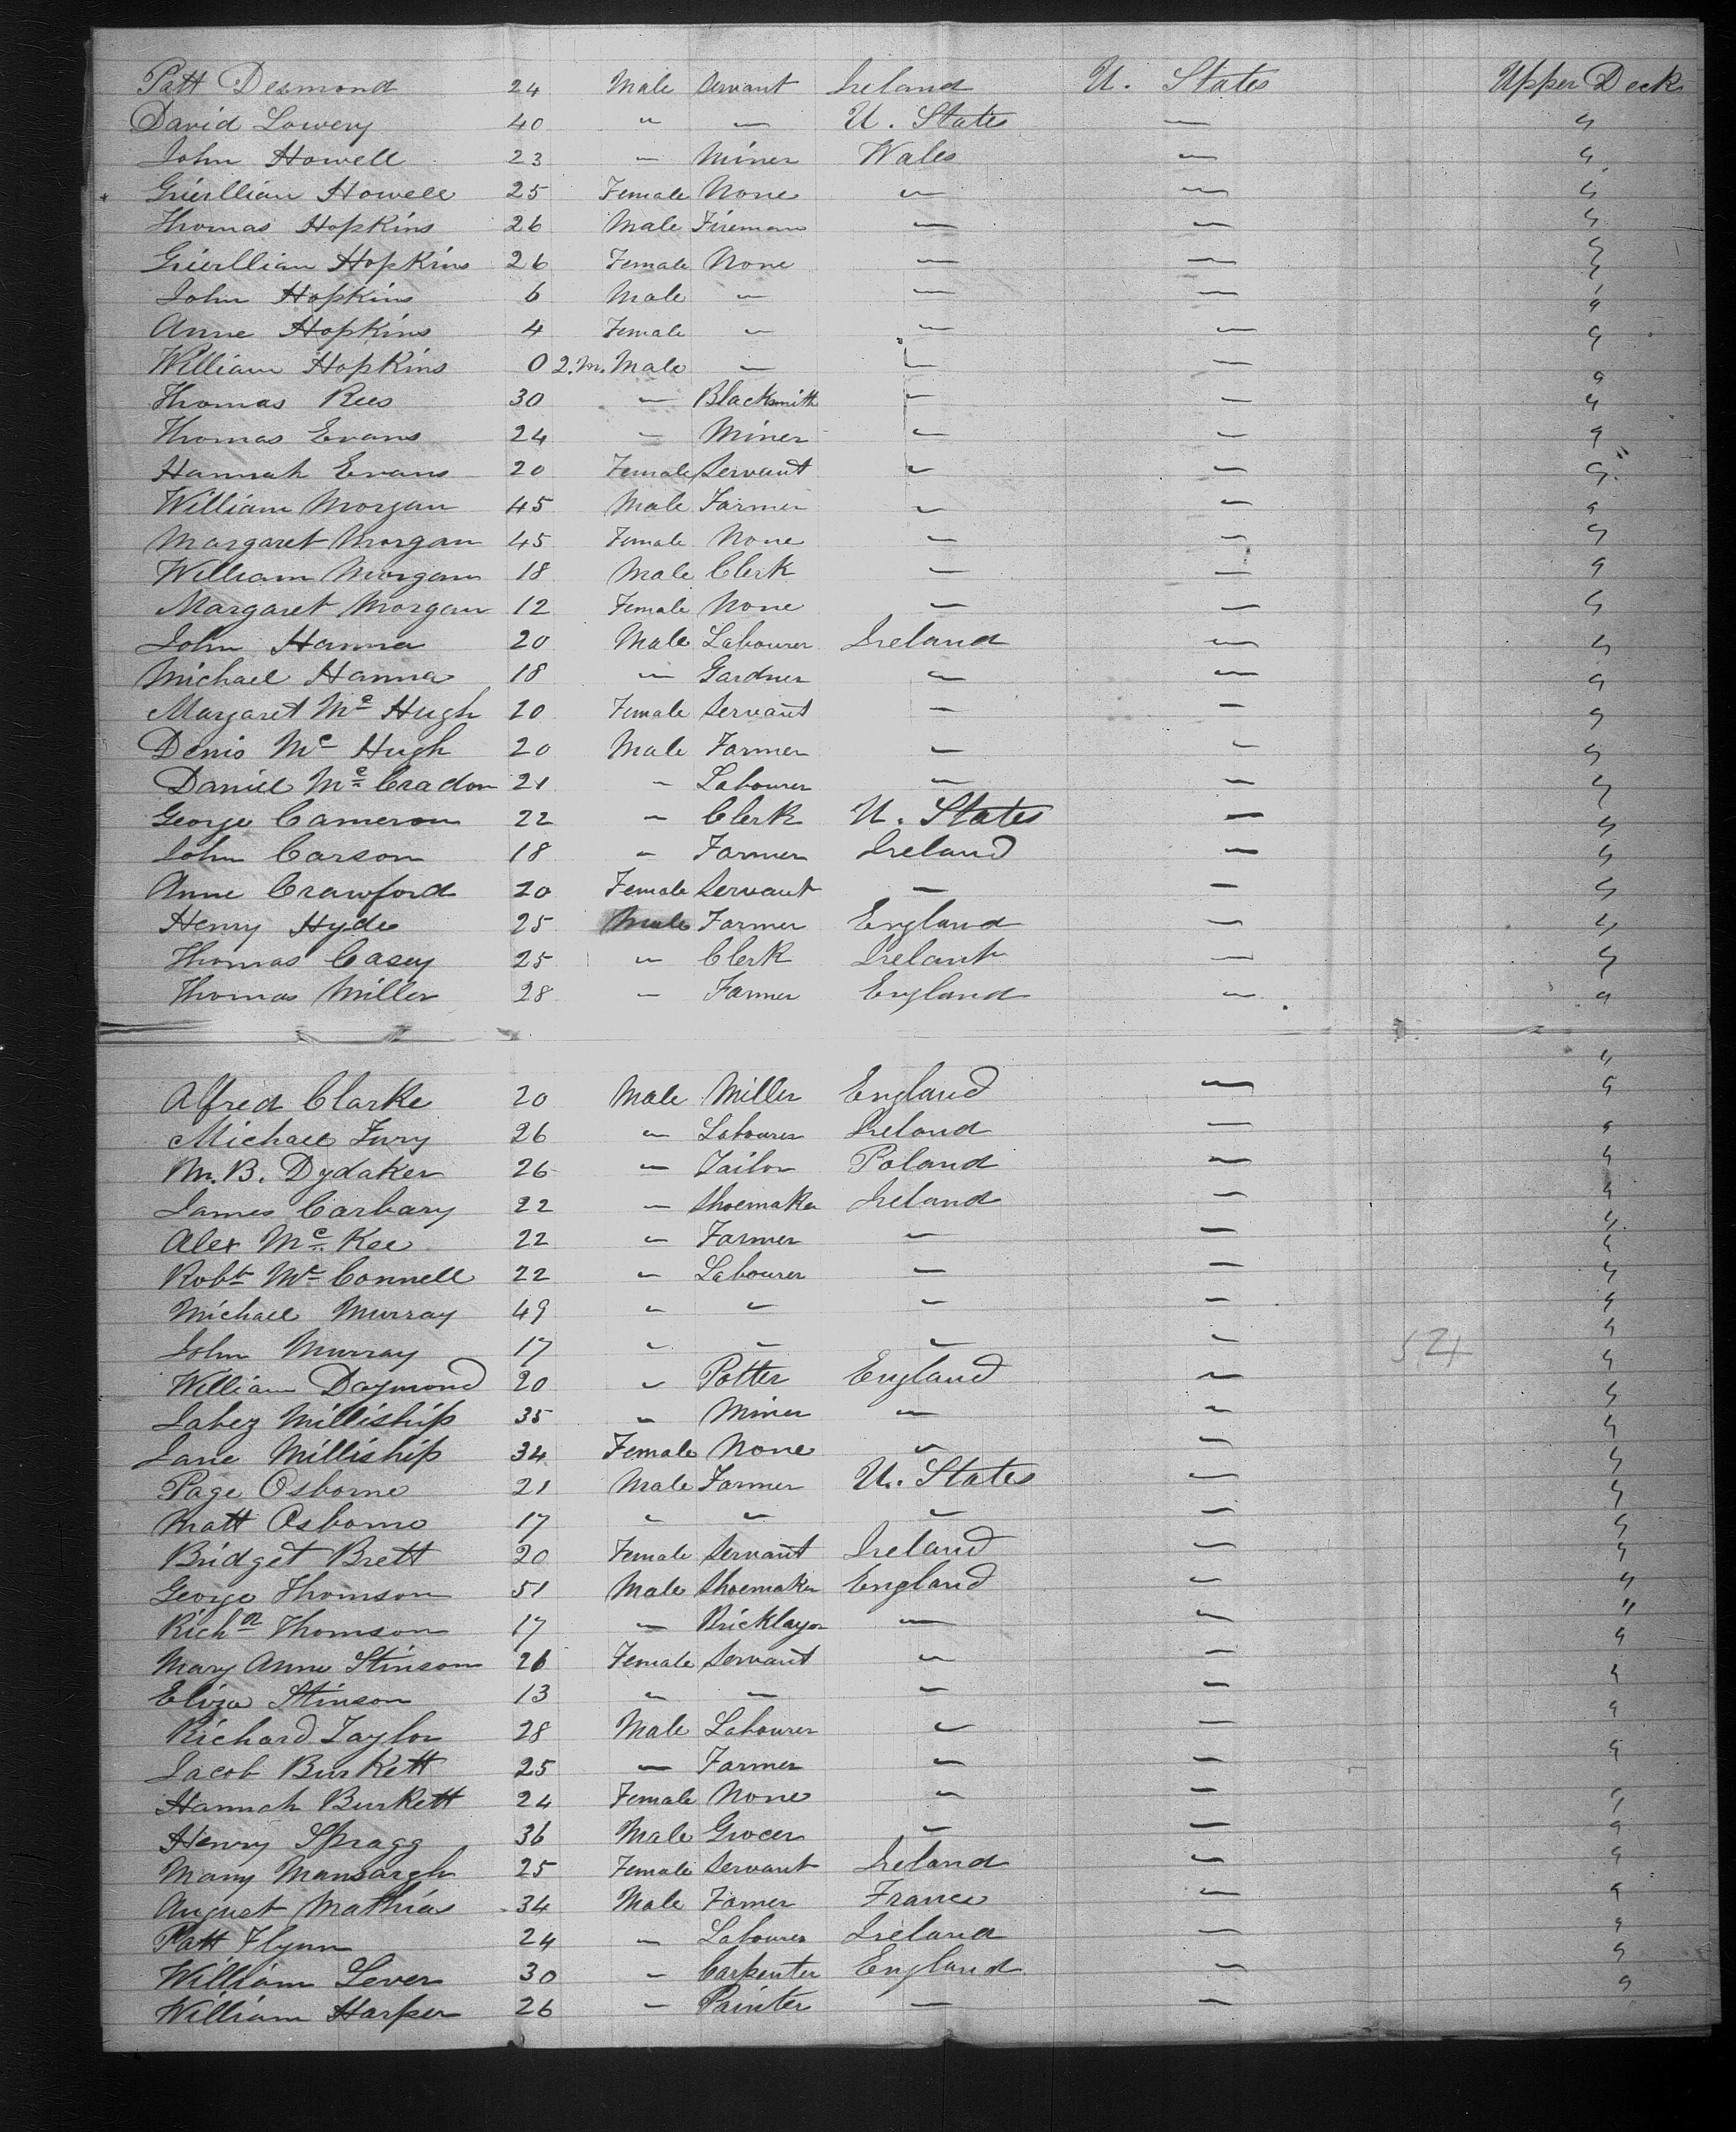 Patt Desmond 24 Male Servant Ireland U. States Upper Deck
David Lowery 40 " — U. States — "
John Howell 23 — Miner Wales — "
Guierllian Howell 25 Female None — — "
Thomas Hopkins 26 Male Fireman — — "
Guierllian Hopkins 26 Female None — — "
John Hopkins 6 Male — — — "
Anne Hopkins 4 Female — — — "
William Hopkins 0 2.m. Male — — — "
Thomas Rees 30 — Blacksmith — — "
Thomas Evans 24 — Miner — — "
Hannah Evans 20 Female Servant — — "
William Morgan 45 Male Farmer — — "
Margaret Morgan 45 Female None — — "
William Morgan 18 Male Clerk — — "
Margaret Morgan 12 Female None — — "
John Hanna 20 Male Labourer Ireland — "
Michael Hanna 18 — Gardner — — "
Margaret Mc Hugh 20 Female Servant — — "
Denis Mc Hugh 20 Male Farmer — — "
Daniel Mc Cradon 21 — Labourer — — "
George Cameron 22 — Clerk U. States — "
John Carson 18 — Farmer Ireland — "
Anne Crawford 20 Female Servant — — "
Henry Hyde 25 Male Farmer England — "
Thomas Casey 25 — Clerk Ireland — "
Thomas Miller 28 — Farmer England — "
Alfred Clarke 20 Male Miller England — "
Michael Fury 26 — Labourer Ireland — "
M. B. Dydaker 26 — Tailor Poland — "
James Carbary 22 — Shoemaker Ireland — "
Alex Mc Kee 22 — Farmer — — "
Robt Mc Connell 22 — Labourer — — "
Michael Murray 49 — — — — "
John Murray 17 — — — — "
William Daymond 20 — Potter England — "
Jabez Milliship 35 — Miner — — "
Jane Milliship 34 Female None — — "
Page Osborne 21 Male Farmer U. States — "
Matt Osborne 17 — — — — "
Bridget Brett 20 Female Servant Ireland — "
George Thomson 51 Male Shoemaker England — "
Richd Thomson 17 — Bricklayer — — "
Mary Anne Stinson 26 Female Servant — — "
Eliza Stinson 13 — — — — "
Richard Taylor 28 Male Labourer — — "
Jacob Burkett 25 — Farmer — — "
Hannah Burkett 24 Female None — — "
Henry Spragg 36 Male Grocer — — "
Mary Mansargh 25 Female Servant Ireland — "
August Mathias 34 Male Farmer France — "
Patt Flynn 24 — Labourer Ireland — "
William Lever 30 — Carpenter England — "
William Harper 26 — Painter — — "